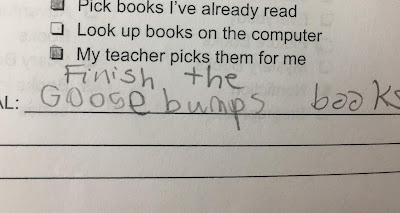 Pick books I've already read
Look up books on the computer
My teacher picks them for me
Finish the
AL: Goosebumps books